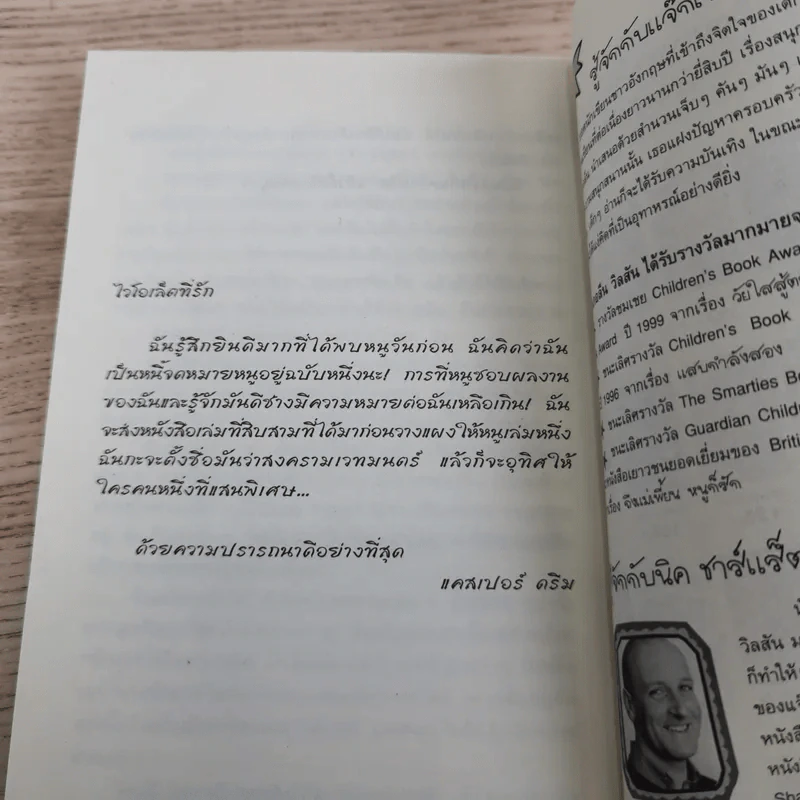 ไวโอเล็ตที่รัก
ฉันรู้สึกยินดีมากที่ได้พบหนูวันก่อน ฉันคิดว่าฉัน
เป็นหนี้จดหมายหนูอยู่ฉบับหนึ่งนะ! การที่หนูชอบผลงาน
ของฉันและรู้จักมันดีช่างมีความหมายต่อฉันเหลือเกิน! ฉัน
จะส่งหนังสือเล่มที่สิบสามที่ได้มาก่อนวางแผงให้หนูเล่มหนึ่ง
ฉันกะจะตั้งชื่อมันว่าสงครามเวทมนตร์ แล้วก็จะอุทิศให้
ใครคนหนึ่งที่แสนพิเศษ...
ด้วยความปรารถนาดีอย่างที่สุด
แคสเปอร์ ดรีม
รู้จักกับแจ๊ก
นักเขียนชาวอังกฤษที่เข้าถึงจิตใจของเด็ก
ที่ต่อเนื่องยาวนานกว่ายี่สิบปี เรื่องสนุก
นำเสนอด้วยสำนวนเจ็บๆ คันๆ มันๆ
สนุกสนานนั้น เธอแฝงปัญหาครอบครัว
อ่านก็จะได้รับความบันเทิง ในขณะ
คิดที่เป็นอุทาหรณ์อย่างดียิ่ง
วิลสัน ได้รับรางวัลมากมาย
รางวัลชมเชย Children's Book
Award ปี 1999 จากเรื่อง วัยใส
ชนะเลิศรางวัล Children's Book
1996 จากเรื่อง แสบกำลังสอง
ชนะเลิศรางวัล The Smarties
ชนะเลิศรางวัล Guardian
หนังสือเยาวชนยอดเยี่ยมของ
เรื่อง ถึงแม่เพี้ยน หนูก็รัก
กับนิค ชาร์แร็ต
วิลสัน
ก็ทำให้
ของ